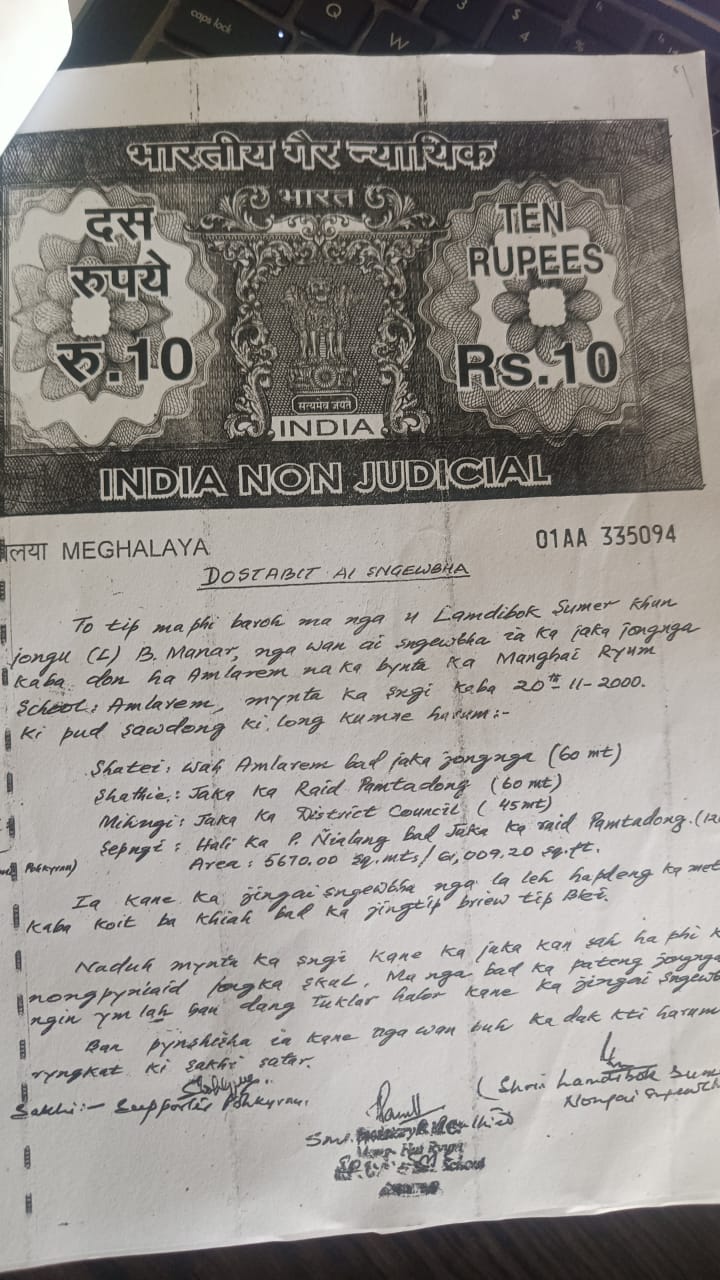 भारतीय गैर न्यायिक
भारत
दस
रुपये
रु.10
TEN
RUPEES
Rs.10
सत्यमेव जयते
INDIA
INDIA NON JUDICIAL
लया MEGHALAYA
01AA 335094
DOSTABIT AI SNGEWBHA
To tip maphi baroh ma nga u Lamdibok Sumer Khun
jongu (L) B. Manar, nga wan ai sngewbha ia ka jaka jongnga
kaba don ha Amlarem na ka bynta ka Manghai Ryum
School: Amlarem, mynta ka sngi kaba 20th-11-2000.
Ki pud sawdong ki long kumne harum:-
Shatei: Wah Amlarem bad jaka jongnga (60 mt)
Shathie: Jaka Ka Raid Pamtadong (60 mt)
Mihngi: Jaka Ka District Council (45mt)
Sepngi: Hali Ka P. Nialang bad Jaka Ka raid Pamtadong. (12
Pohkyrun)
Area: 5670.00 sq.mts/ 61,009.20 sq.ft.
Ia kane ka jingai sngewbha nga la leh hapdeng ka met
kaba koit ba khiah bad ka jingtip briew tip Blei.
Naduh mynta ka sngi kane ka jaka kan sah ha phi k
nongpyniaid jongka skul. Ma nga bad ka pateng jongnga
ngin ym lah ban dang tuklar halor kane ka jingai sngewb
Ban pynshisha ia kane nga wan buh ka dak kti harum
ryngkat ki sakhi satar.
Sakhi:- Pohkyrun.
(Shri Lamdibok Sum
Nongai sngewbh
School